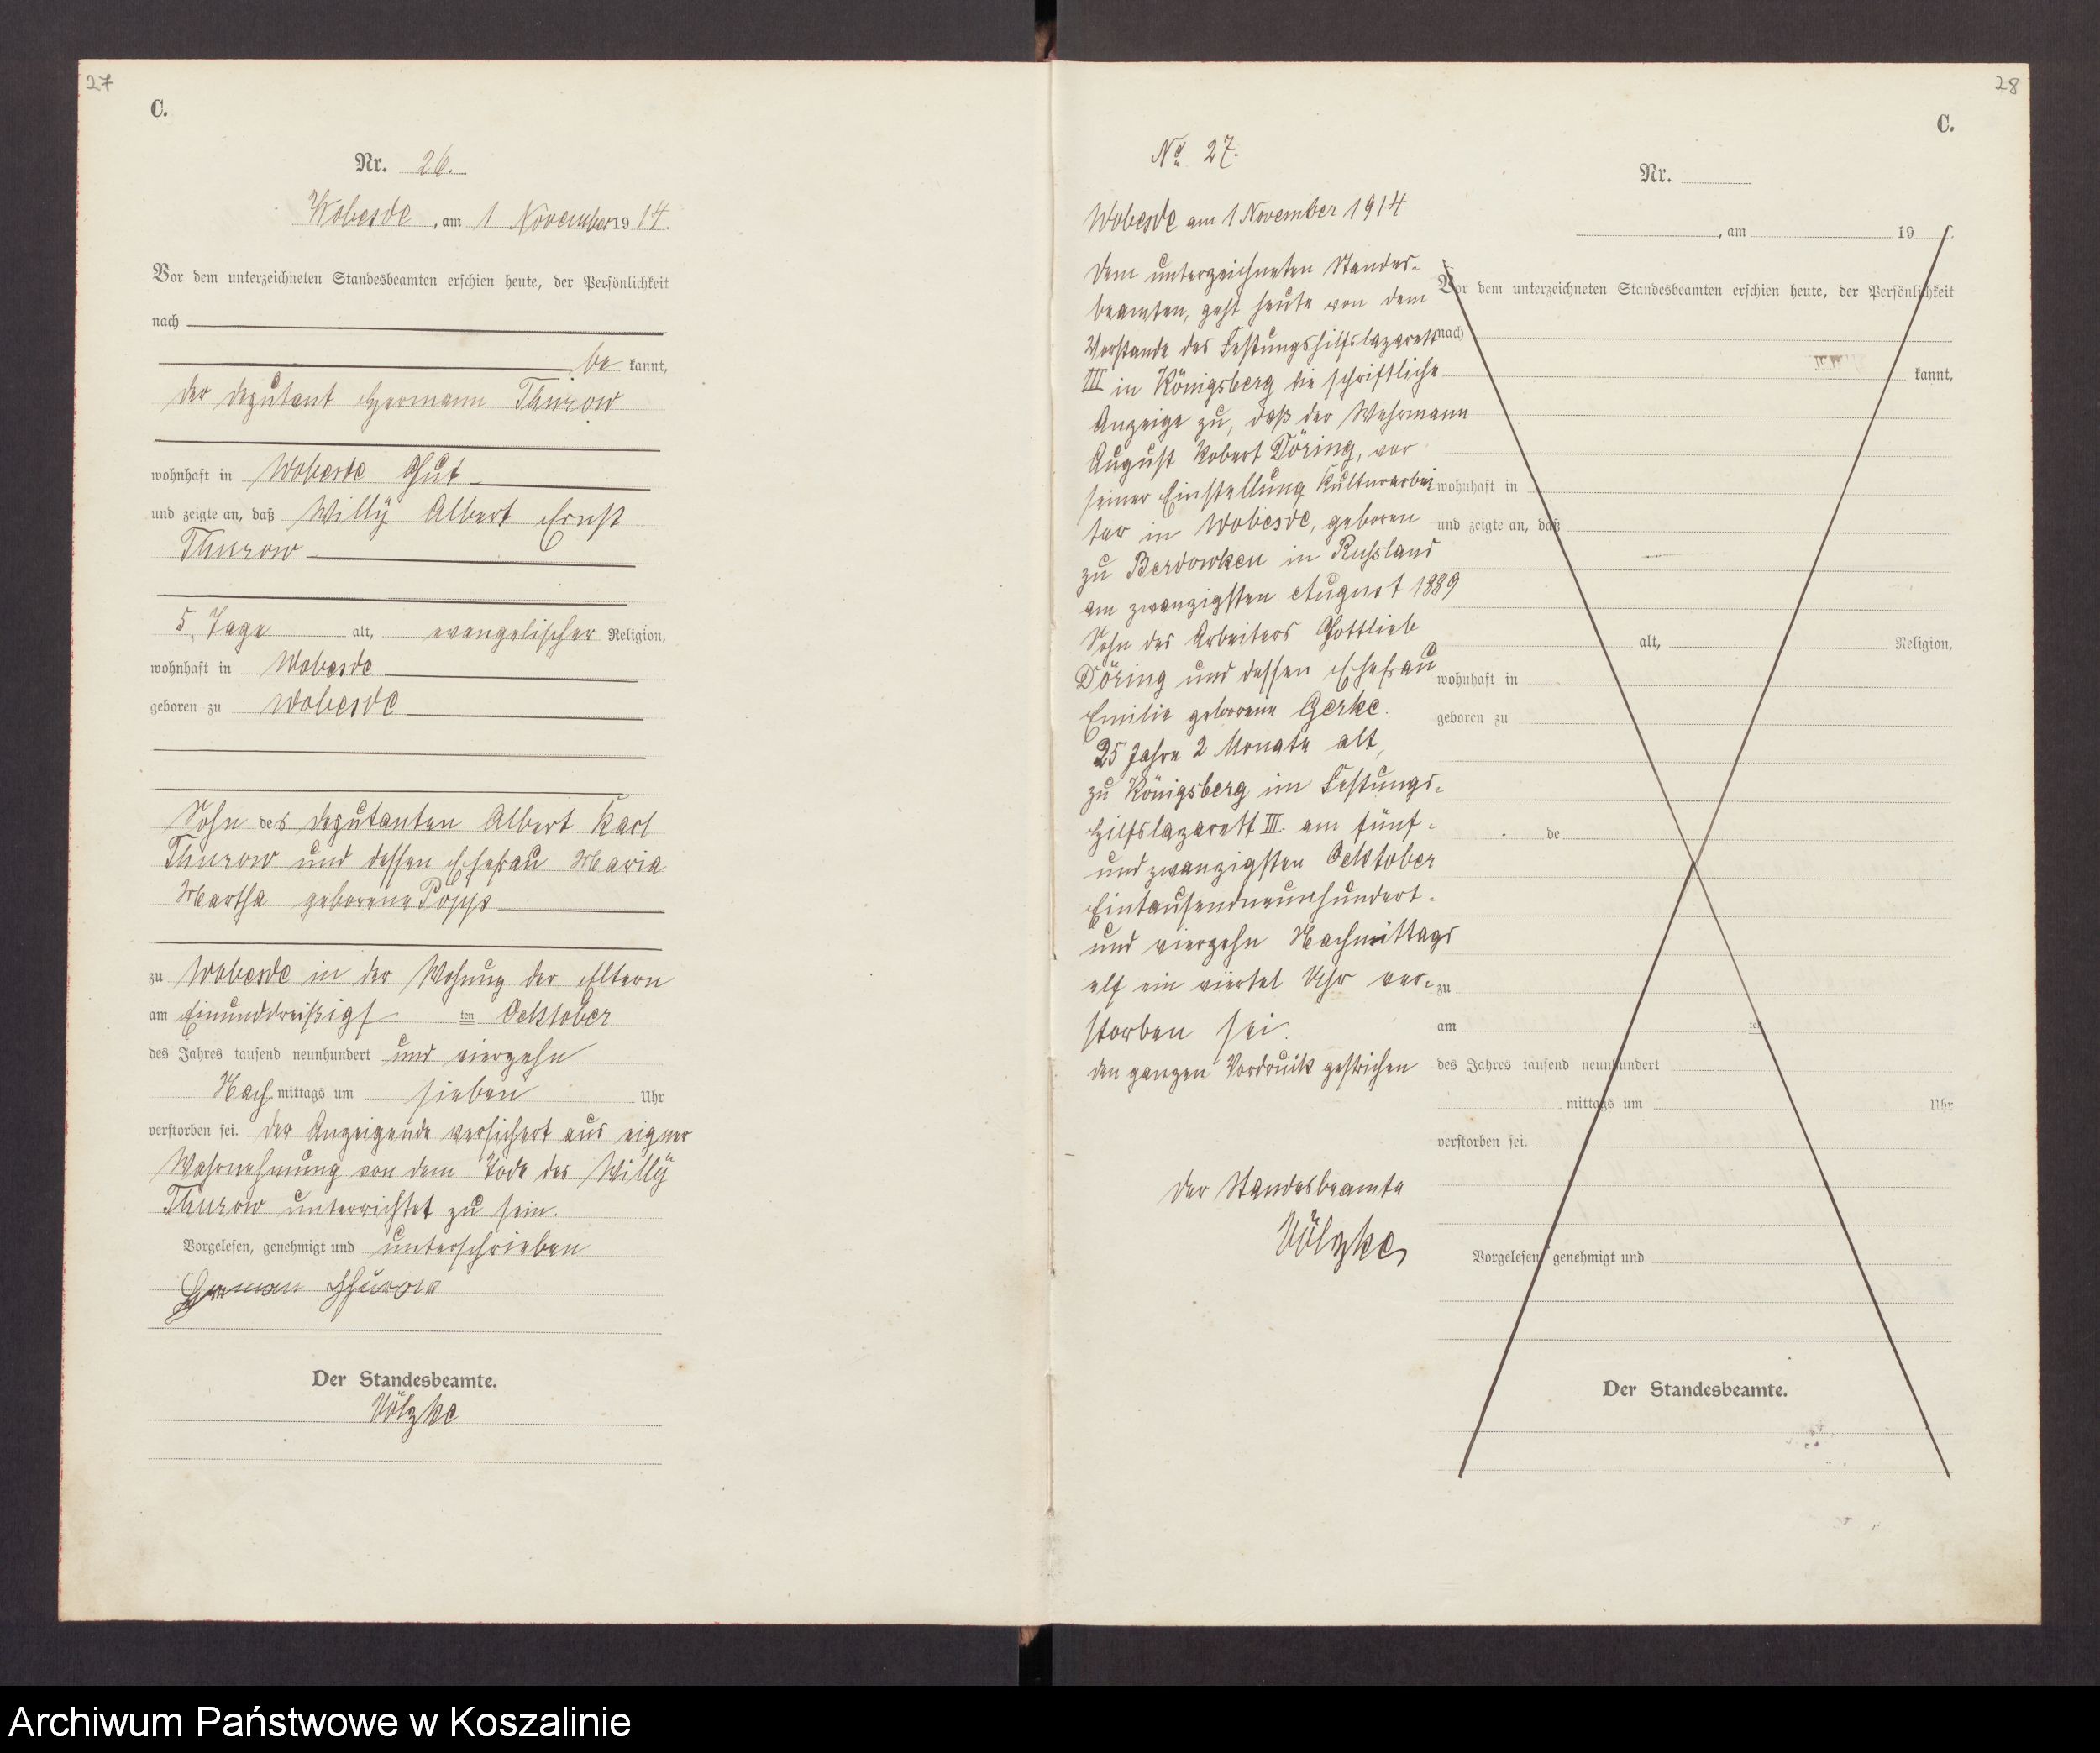 27
C.
Nr. 26.
Wobesde, am 1 November 1914.
Vor dem unterzeichneten Standesbeamten erschien heute, der Persönlichkeit
nach
be kannt,
der Deputant Hermann Thurow
wohnhaft in Wobesde Gut
und zeigte an, daß Willÿ Albert Ernst
Thurow
5 Tage alt, evangelischer Religion,
wohnhaft in Wobesde
geboren zu Wobesde
Sohn des Deputanten Albert Karl
Thurow und dessen Ehefrau Maria
Martha geborene Popp
zu Wobesde in der Wohnung der Eltern
am Einunddreißigs ten Ocktober
des Jahres tausend neunhundert und vierzehn
Nach mittags um sieben Uhr
verstorben sei. Der Anzeigende versichert aus eigner
Wahrnehmung von dem Tode des Willÿ
Thurow unterrichtet zu sein.
Vorgelesen, genehmigt und unterschrieben
Herman Thurow
Der Standesbeamte.
Völzke
28
C.
No 27.
Wobesde am 1 November 1914
Dem unterzeichneten Standes-
beamten, geht heute von dem
Vorstande des Festungshilfslazarett
III in Königsberg die schriftliche
Anzeige zu, daß der Wehrmann
August Robert Döring, vor
seiner Einstellung Kulturarbei
ter in Wobesde, geboren
zu Berdowken in Russland
am zwanzigsten August 1889
Sohn des Arbeiters Gottlieb
Döring und dessen Ehefrau
Emilie geborene Gerke.
25 Jahre 2 Monate alt,
zu Königsberg im Festungs-
hilfslazarett III. am fünf-
und zwanzigsten Ocktober
Eintausendneunhundert-
und vierzehn Nachmittags
elf ein viertel Uhr ver-
storben sei.
den ganzen Vordruck gestrichen
Der Standesbeamte
Völzke
Nr.
, am 19
Vor dem unterzeichneten Standesbeamten erschien heute, der Persönlichkeit
nach
kannt,
wohnhaft in
und zeigte an, daß
alt, Religion,
wohnhaft in
geboren zu
de
zu
am ten
des Jahres tausend neunhundert
mittags um Uhr
verstorben sei.
Vorgelesen, genehmigt und
Der Standesbeamte.
Archiwum Państwowe w Koszalinie